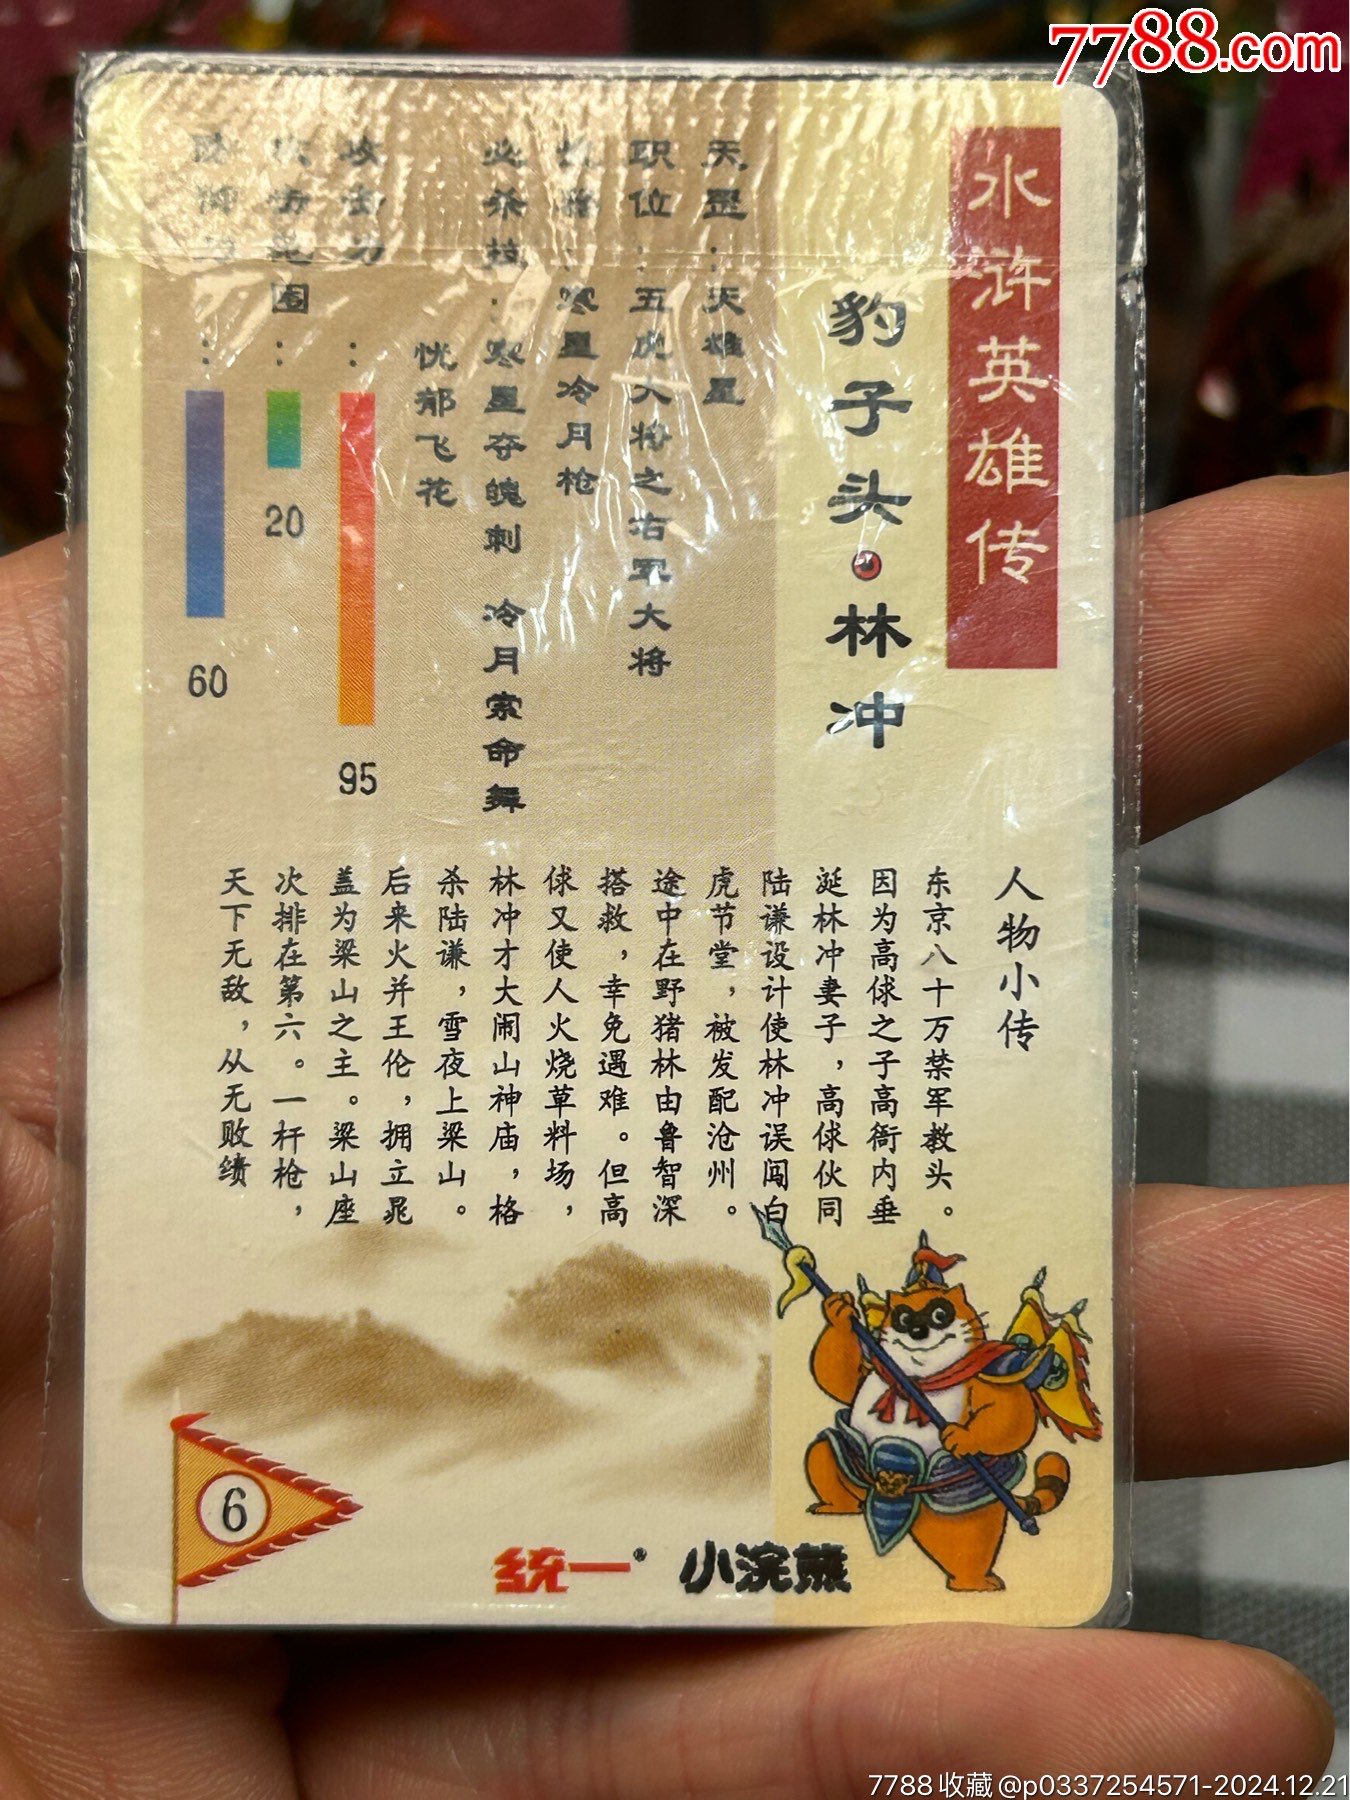 7788.com
水浒英雄传
豹子头·林冲
天罡：天雄星
职位：五虎大将之右军大将
：寒星冷月枪
必杀技：寒星夺魄刺 冷月索命舞
忧郁飞花
攻击力：95
攻击范围：20
防御力：60
人物小传
东京八十万禁军教头。
因为高俅之子高衙内垂
涎林冲妻子，高俅伙同
陆谦设计使林冲误闯白
虎节堂，被发配沧州。
途中在野猪林由鲁智深
搭救，幸免遇难。但高
俅又使人火烧草料场，
林冲才大闹山神庙，格
杀陆谦，雪夜上梁山。
后来火并王伦，拥立晁
盖为梁山之主。梁山座
次排在第六。一杆枪，
天下无敌，从无败绩
6
统一® 小浣熊
7788收藏@p0337254571-2024.12.21